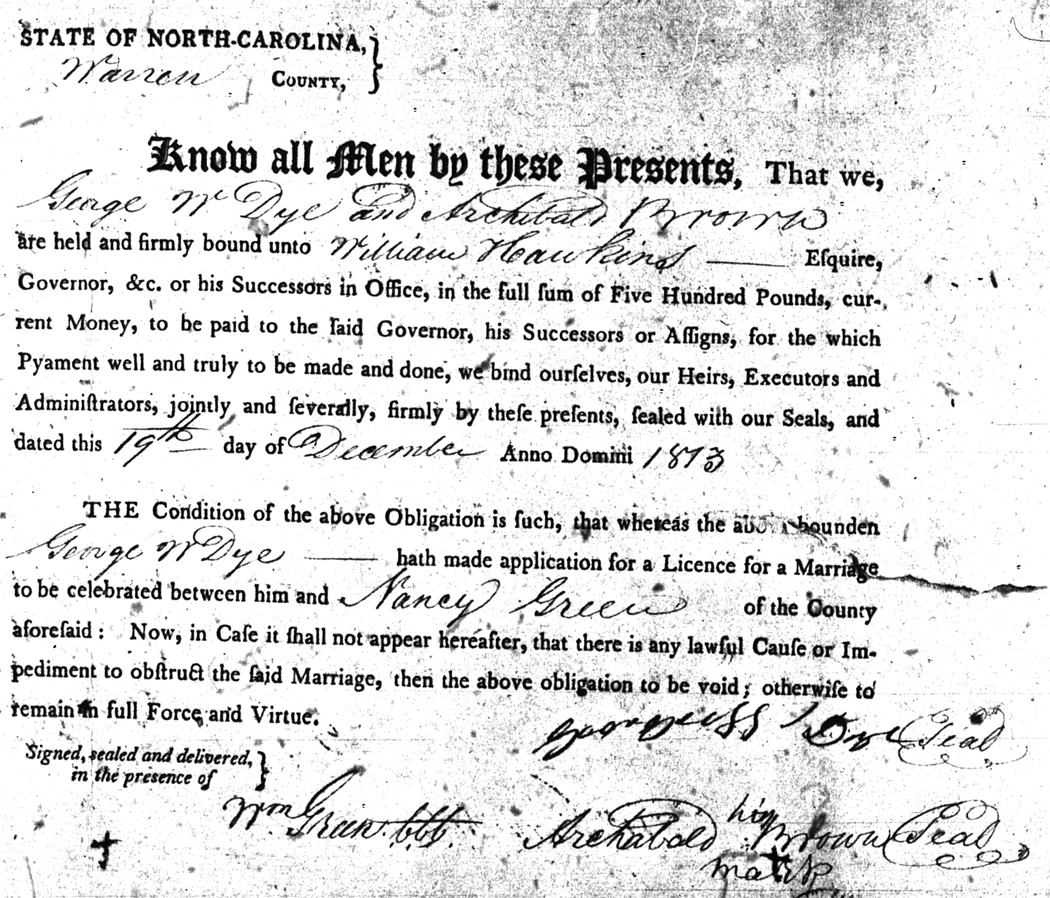 STATE OF NORTH-CAROLINA, }
Warren COUNTY, }
Know all Men by these Presents, That we,
George W Dye and Archibald Brown
are held and firmly bound unto William Hawkins —— Eſquire,
Governor, &c. or his Successors in Office, in the full ſum of Five Hundred Pounds, cur-
rent Money, to be paid to the ſaid Governor, his Successors or Aſſigns, for the which
Pyament well and truly to be made and done, we bind ourſelves, our Heirs, Executors and
Adminiſtrators, jointly and ſeverally, firmly by theſe preſents, ſealed with our Seals, and
dated this 19th day of December Anno Domini 1813
THE Condition of the above Obligation is ſuch, that whereas the above bounden
George W Dye —— hath made application for a Licence for a Marriage
to be celebrated between him and Nancy Green of the County
aforeſaid: Now, in Caſe it ſhall not appear hereafter, that there is any lawful Cauſe or Im-
pediment to obſtruct the ſaid Marriage, then the above obligation to be void; otherwiſe to
remain in full Force and Virtue.
Dye Seal
Signed, sealed and delivered, }
in the presence of }
Wm Green
Archabald his Brown Seal
mark